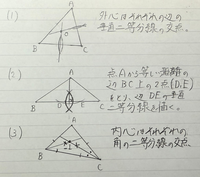 (1)
A
B
C
O
外心はそれぞれの辺の
垂直二等分線の交点。
(2)
A
B
D
E
C
点Aから等しい距離の
辺BC上の2点(D,E)
をとり、辺DEの垂直
二等分線を描く。
(3)
A
B
C
内心はそれぞれの
角の二等分線の交点。